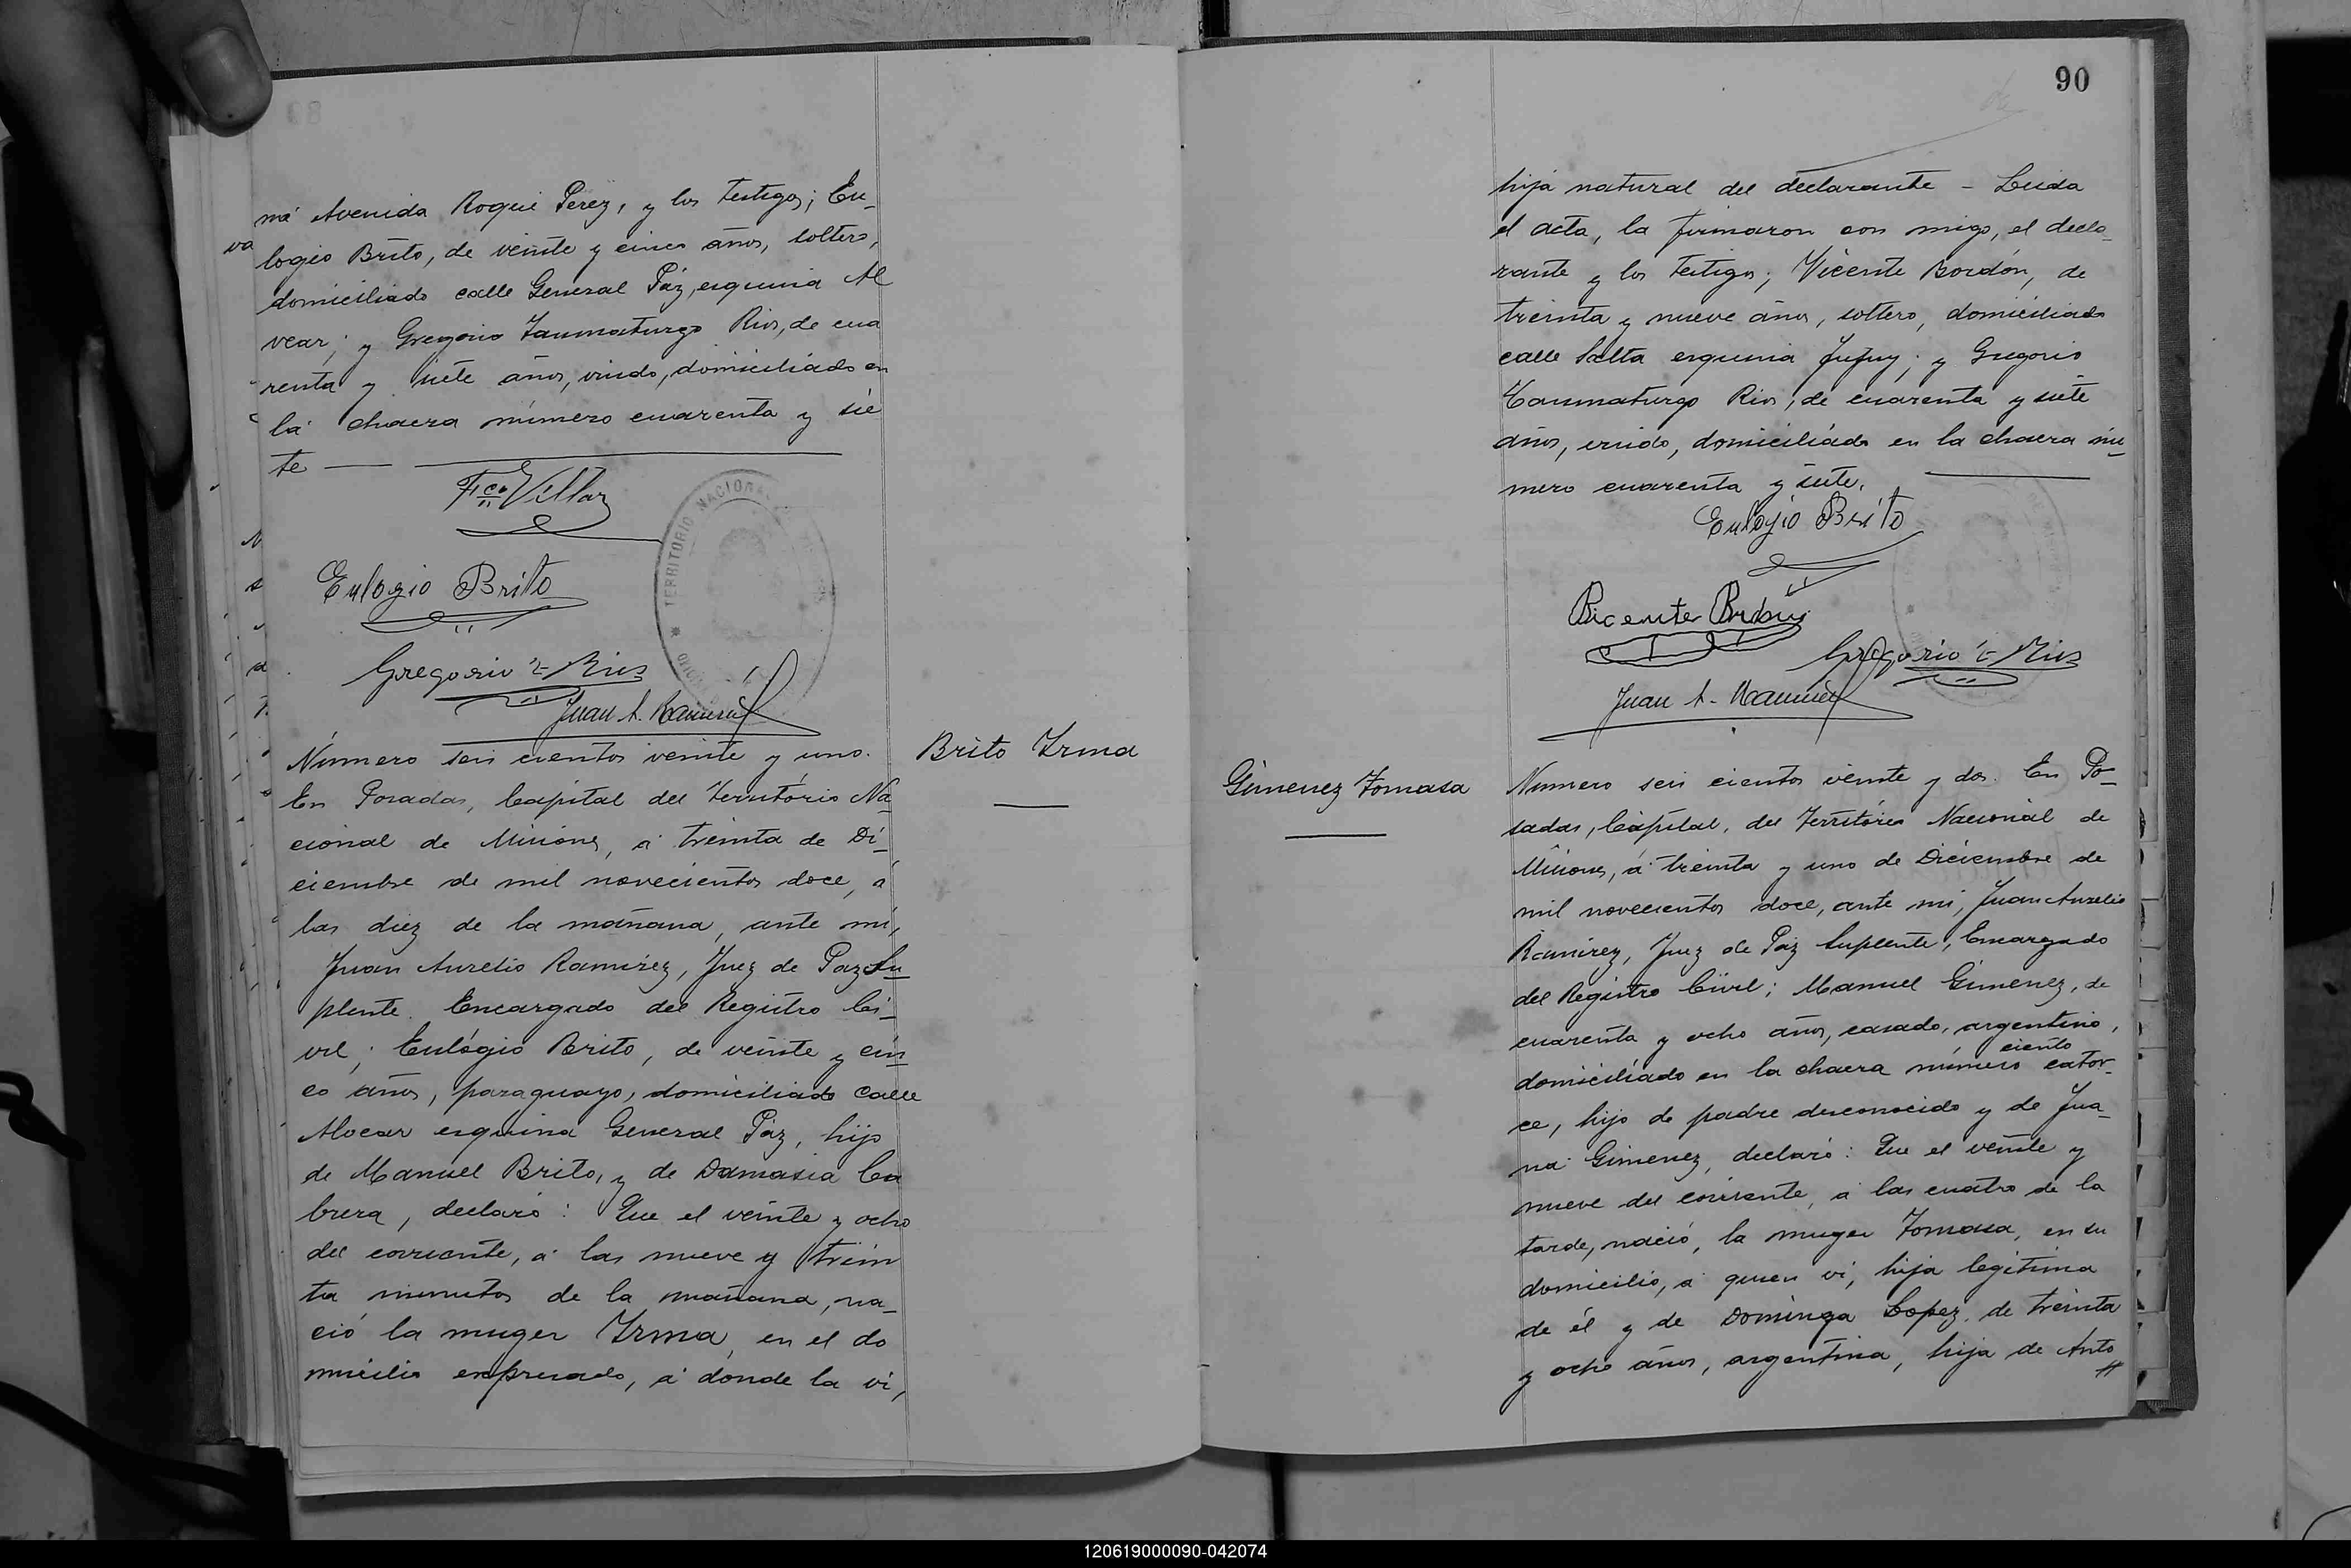 ná Avenida Roque Perez, y los testigos; Eu-
logio Brito, de veinte y cinco años, soltero,
domiciliado calle General Páz, esquina Al
vear; y Gregorio Taumaturgo Rios, de cua
renta y siete años, viudo, domiciliado en
la chacra número cuarenta y sie
te
Fco Villar
TERRITORIO NACIONAL
Eulogio Brito
Gregorio T Rios
Juan A. Ramirez
Número seis cientos veinte y uno.
En Posadas, Capital del Territorio Na
cional de Misiones, á treinta de Di-
ciembre de mil novecientos doce, á
las diez de la mañana, ante mi,
Juan Aurelio Ramirez, Juez de Paz Su
plente. Encargado del Registro Ci-
vil; Eulógio Brito, de veinte y cin
co años, paraguayo, domiciliado calle
Alvear esquina General Páz, hijo
de Manuel Brito, y de Damasia Ca
brera, declaró: Que el veinte y ocho
del corriente, á las nueve y trein
ta minutos de la mañana, na-
ció la muger Irma, en el do
micilio expresado, á donde la vi,
Brito Irma
90
hija natural del declarante - Leida
el acta, la firmaron con migo, el decla-
rante y los testigos; Vicente Bordón, de
treinta y nueve años, soltero, domiciliado
calle Salta esquina Jujuy; y Gregorio
Taumaturgo Rios, de cuarenta y siete
años, viudo, domiciliado en la chacra nú-
mero cuarenta y siete.
Eulogio Brito
Bicente Bordón
Gregorio T Rios
Juan A. Ramirez
Gimenez Tomasa
Número seis cientos veinte y dos. En Po-
sadas, Capital, del Territorio Nacional de
Misiones, á treinta y uno de Diciembre de
mil novecientos doce, ante mi, Juan Aurelio
Ramirez, Juez de Páz Suplente, Encargado
del Registro Civil; Manuel Gimenez, de
cuarenta y ocho años, casado, argentino,
ciento
domiciliado en la chacra número cator-
ce, hijo de padre desconocido y de Jua-
na Gimenez, declaró: Que el veinte y
nueve del corriente, á las cuatro de la
tarde, nació, la muger Tomasa, en su
domicilio, á quien vi, hija legitima
de él y de Dominga Lopez, de treinta
y ocho años, argentina, hija de Anto
120619000090-042074